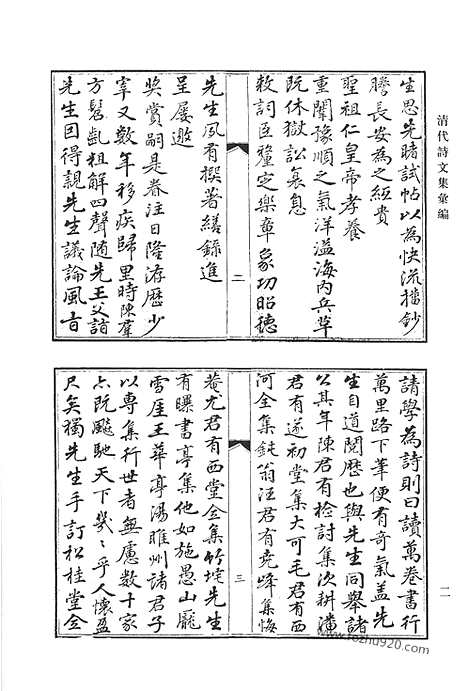 清代詩文集彙編
生思先睹試帖以為快流播鈔
謄長安為之紙貴
聖祖仁皇帝孝養
重闈豫順之氣洋溢海内兵革
既休獄訟衰息
敕詞臣釐定樂章象功昭德
二
先生夙有撰著繕錄進
呈屢邀
奬賞嗣是眷注日隆洊歷少
宰又數年移疾歸里時陳羣
方髫齔粗解四聲隨先王父詣
先生因得親先生議論風旨
請學為詩則曰讀萬卷書行
萬里路下筆便有奇氣蓋先
生自道閱歷也與先生同舉諸
公其年陳君有檢討集次耕潘
君有遂初堂集大可毛君有西
河全集鈍翁汪君有堯峰集悔
三
菴尤君有西堂全集竹垞先生
有曝書亭集他如施愚山龐
雪厓王華亭湯睢州諸君子
以專集行世者無慮數十家
亦既飈馳天下幾幾乎人懷盈
尺矣獨先生手訂松桂堂全
一一
www.fozhu920.com